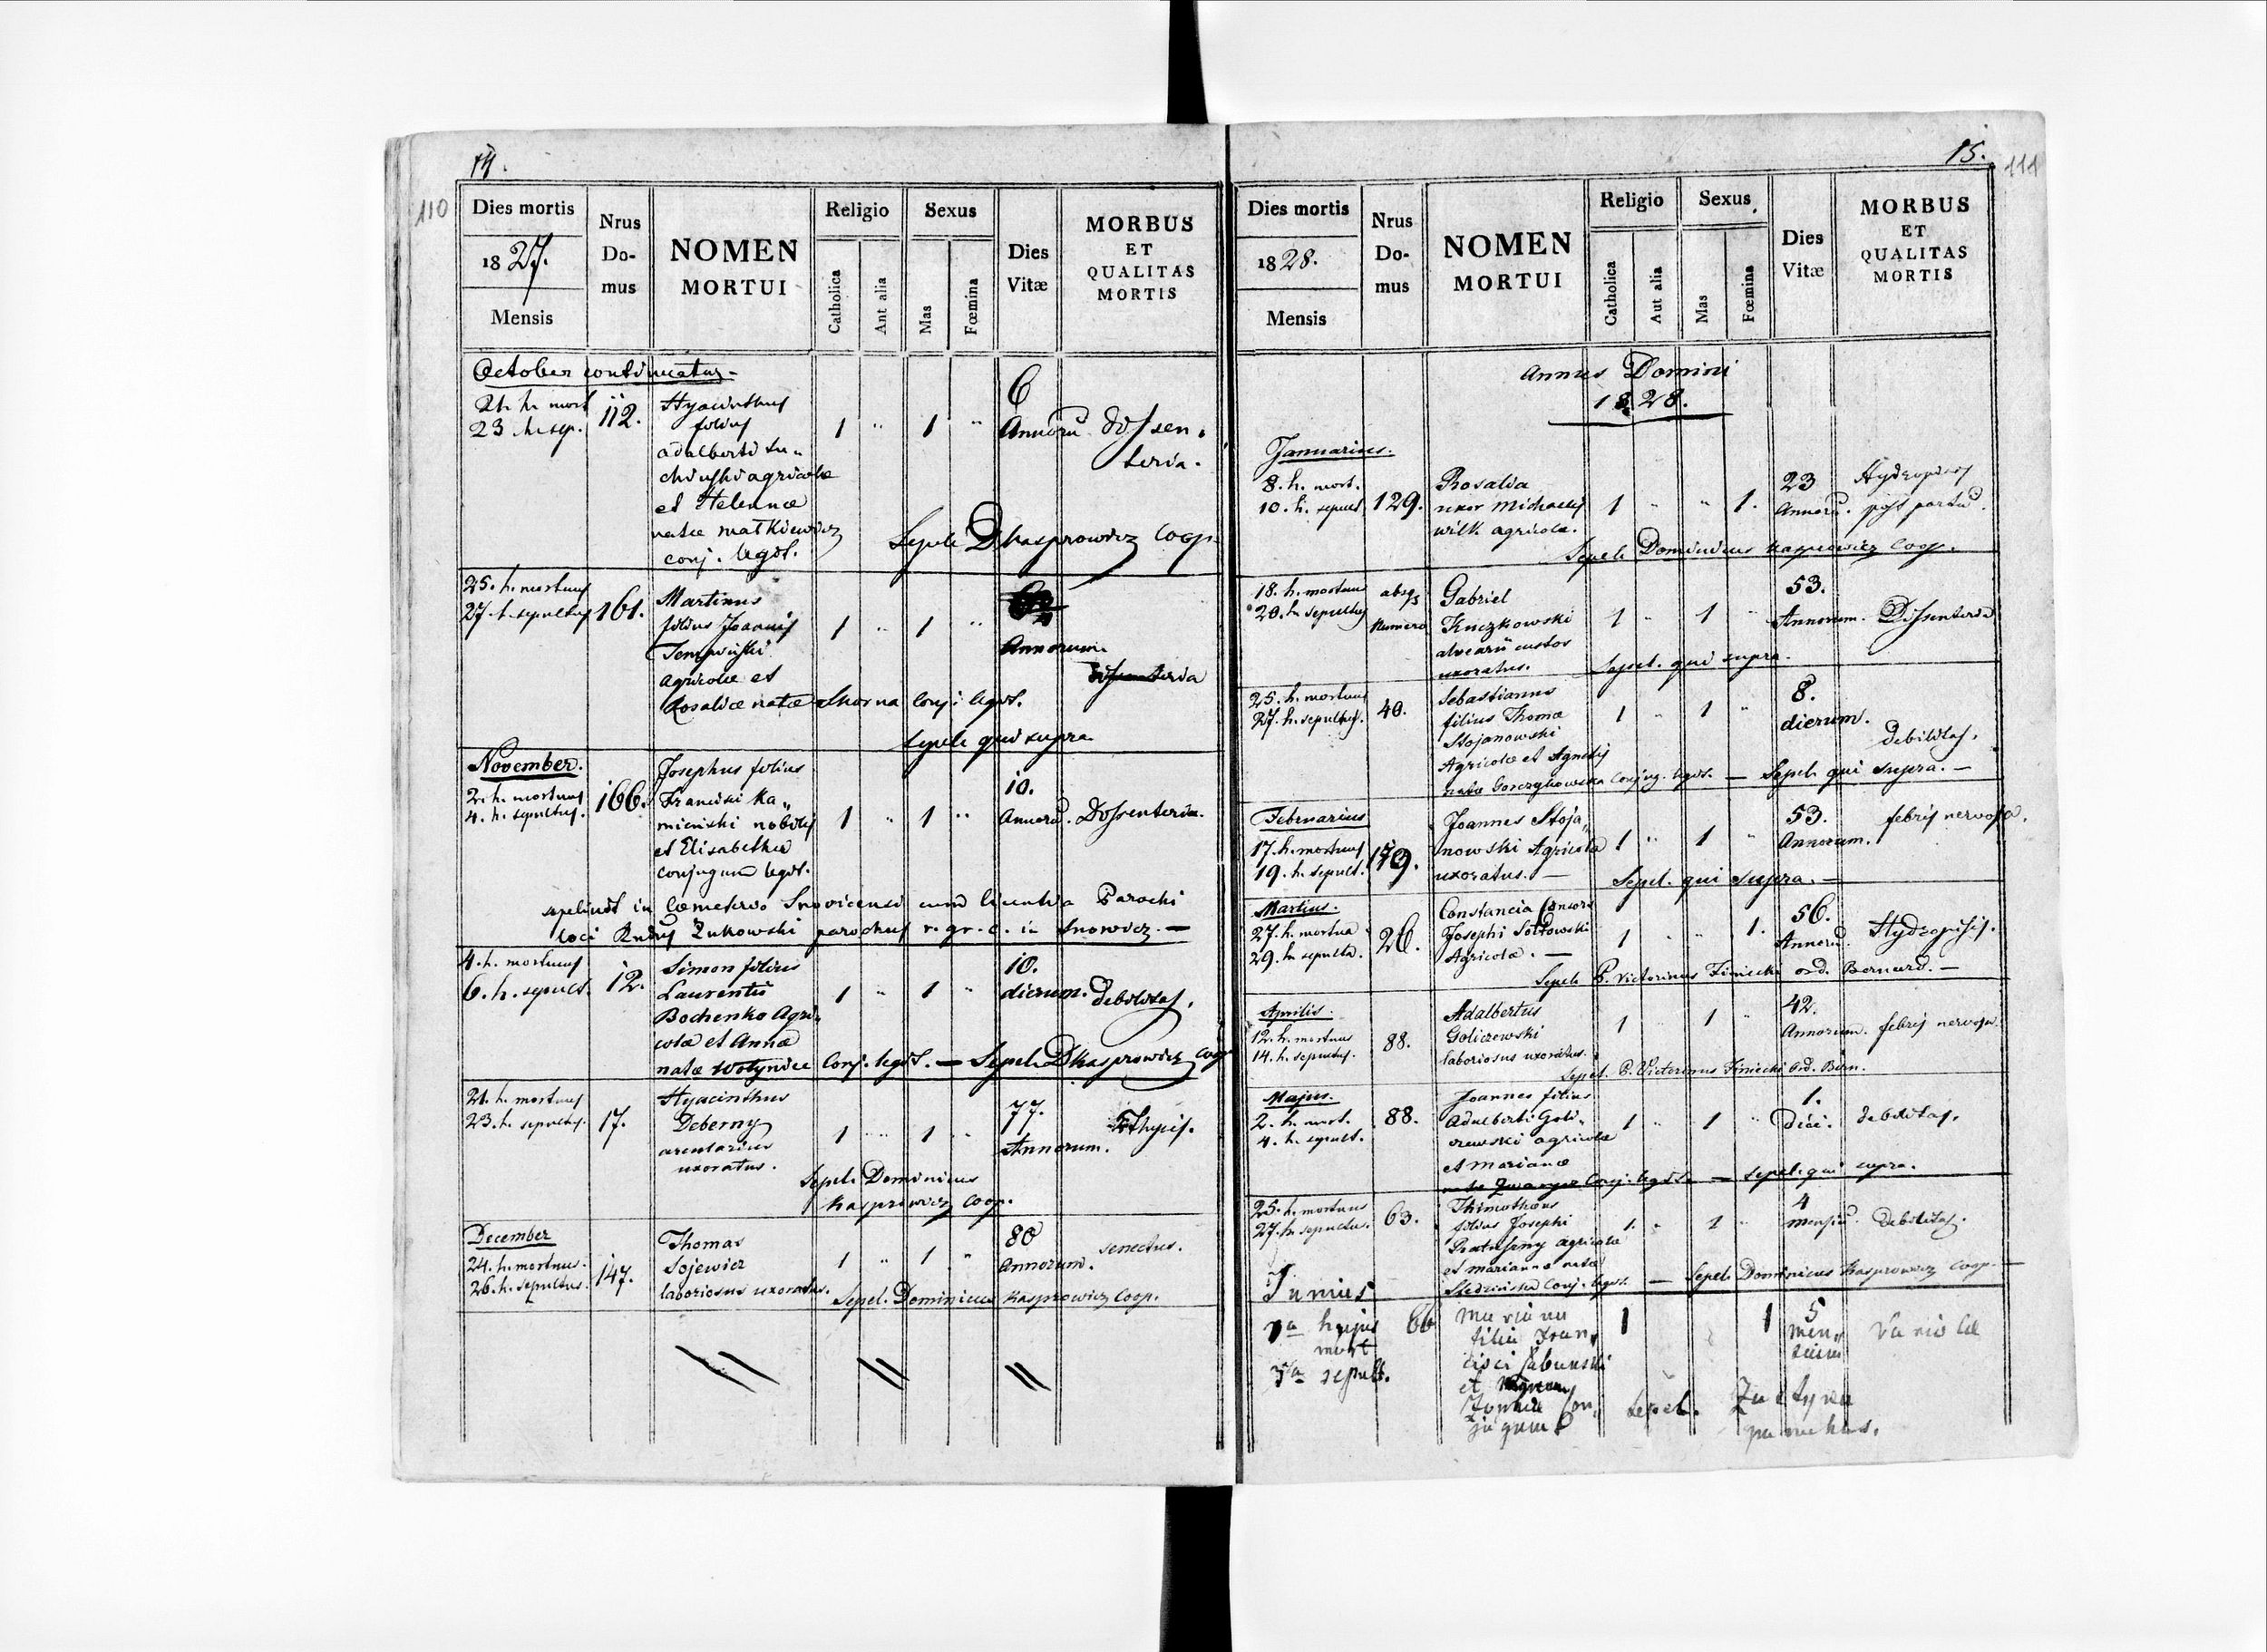 14.
110
Dies mortis
1827.
Mensis
Nrus
Do-
mus
NOMEN
MORTUI
Religio
Catholica
Ant alia
Sexus
Mas
Fœmina
Dies
Vitæ
MORBUS
ET
QUALITAS
MORTIS
October continuatur
21. h. mort
23 h. sep.
112.
Hyacinthus
filius
adalberti
agricolæ
et Helenæ
natæ Matkiewicz
conj. legit.
1 " 1 "
6
Annorũ
Dissen,
teria.
Sepeli D Kasprowicz Coop.
25. h. mortuus
27. h. sepultus
161.
Martinus
filius Joannis
agricolæ et
Rosaliæ natæ Skorna Conj: legit.
1 " 1 "
Annorum.
Dissenteria
Sepeli qui supra
November.
2. h. mortuus
4. h. sepultus.
166.
Josephus filius
Francisci Ka,,
mieński nobilis
et Elisabetha
conjugum legit.
1 " 1 "
10.
Annorũ.
Dissenteria.
sepelivit in Cœmeterio Snovicensi cum licentia Parochi
loci Żukowski parochus r. gr. c. in Snowicz. —
4. h. mortuus
6. h. sepult.
12.
Simon filius
Laurentii
Bochenko Agri,,
colæ et Anna
natæ Wolynice Conj. legit. — Sepeli D Kasprowicz Coop
1 " 1 "
10.
dierum.
Debilitas.
21. h. mortuus
23. h. sepultus.
17.
Hyacinthus
Deberny
uxoratus.
1 " 1 "
77.
Annorum.
Sepeli Dominicus
Kasprowicz Coop.
December
24. h. mortuus.
26. h. sepultus.
147.
Thomas
Sojewicz
laboriosus uxoratus.
1 1 "
80
Annorum.
senectus.
Sepel. Dominicus Kasprowicz Coop.
15.
111
Dies mortis
1828.
Mensis
Nrus
Do-
mus
NOMEN
MORTUI
Religio
Catholica
Aut alia
Sexus
Mas
Fœmina
Dies
Vitæ
MORBUS
ET
QUALITAS
MORTIS
Annus Domini
1828.
Januarius.
8. h. mort.
10. h. sepult.
129.
Rosalia
uxor Michaelis
Wilk agricola.
1 " " 1.
23
Annorũ.
Hydropisis
post partũ.
Sepeli Dominicus Kasprowicz Coop.
18. h. mortuus
20. h. sepultus
absqs
Numero
Gabriel
Kuczkowski
alvearii custos
uxoratus.
1 " 1 "
53.
Annorum.
Dissenteria
Sepel. qui supra.
25. h. mortuus
27. h. sepultus.
40.
Sebastianus
filius Thomæ
Stojanowski
Agricolæ et Agnetis
natæ Gorczykowska Conjug. legit. — Sepel. qui supra. —
1 " 1 "
8.
dierum.
Debilitas.
Februarius
17. h. mortuus
19. h. sepult.
179.
Joannes Stoja,,
nowski Agricola
uxoratus. —
1 " 1 "
53.
Annorum.
febris nervosa.
Sepel. qui supra. —
Martius.
27. h. mortua
29. h. sepulta.
26.
Constancia Consors
Josephi
Agricolæ. —
1 " " 1.
56.
Annorũ.
Hydropisis.
Sepeli P. Victorinus Finiecki ord. Bernard. —
Aprilis.
12. h. mortuus
14. h. sepultus.
88.
Adalbertus
Goliczewski
laboriosus uxoratus.
1 " 1 "
42.
Annorum.
febris nervosa
Sepel. P. Victorinus Finiecki Ord. Bern.
Majus.
2. h. mort.
4. h. sepult.
88.
Joannes filius
Adalberti Goli,,
czewski agricolæ
et Marianæ
natæ Conj. legit. — sepel. qui supra.
1 " 1 "
1.
Diei.
debilitas.
25. h. mortuus
27. h. sepultus.
63.
Thimotheus
filius Josephi
agricolæ
et Marianna natæ
Conj. legit. — Sepeli Dominicus Kasprowicz Coop. —
1. " 1 "
4
mensiũ.
Debilitas.
Junius
1a hujus
mort
3a sepult.
66
Mariana
filia Fran,,
cisci
et
Zophia Con,,
jugum
1 1
5
men,,
sium
Variolæ
Sepel.
parochus.